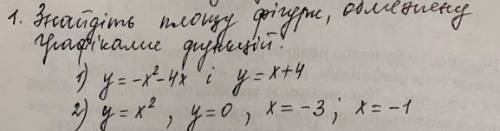 1. Знайдіть площу фігури, обмежену
графіками функцій:
1) y = -x² - 4x і y = x + 4
2) y = x² , y = 0 , x = -3 ; x = -1